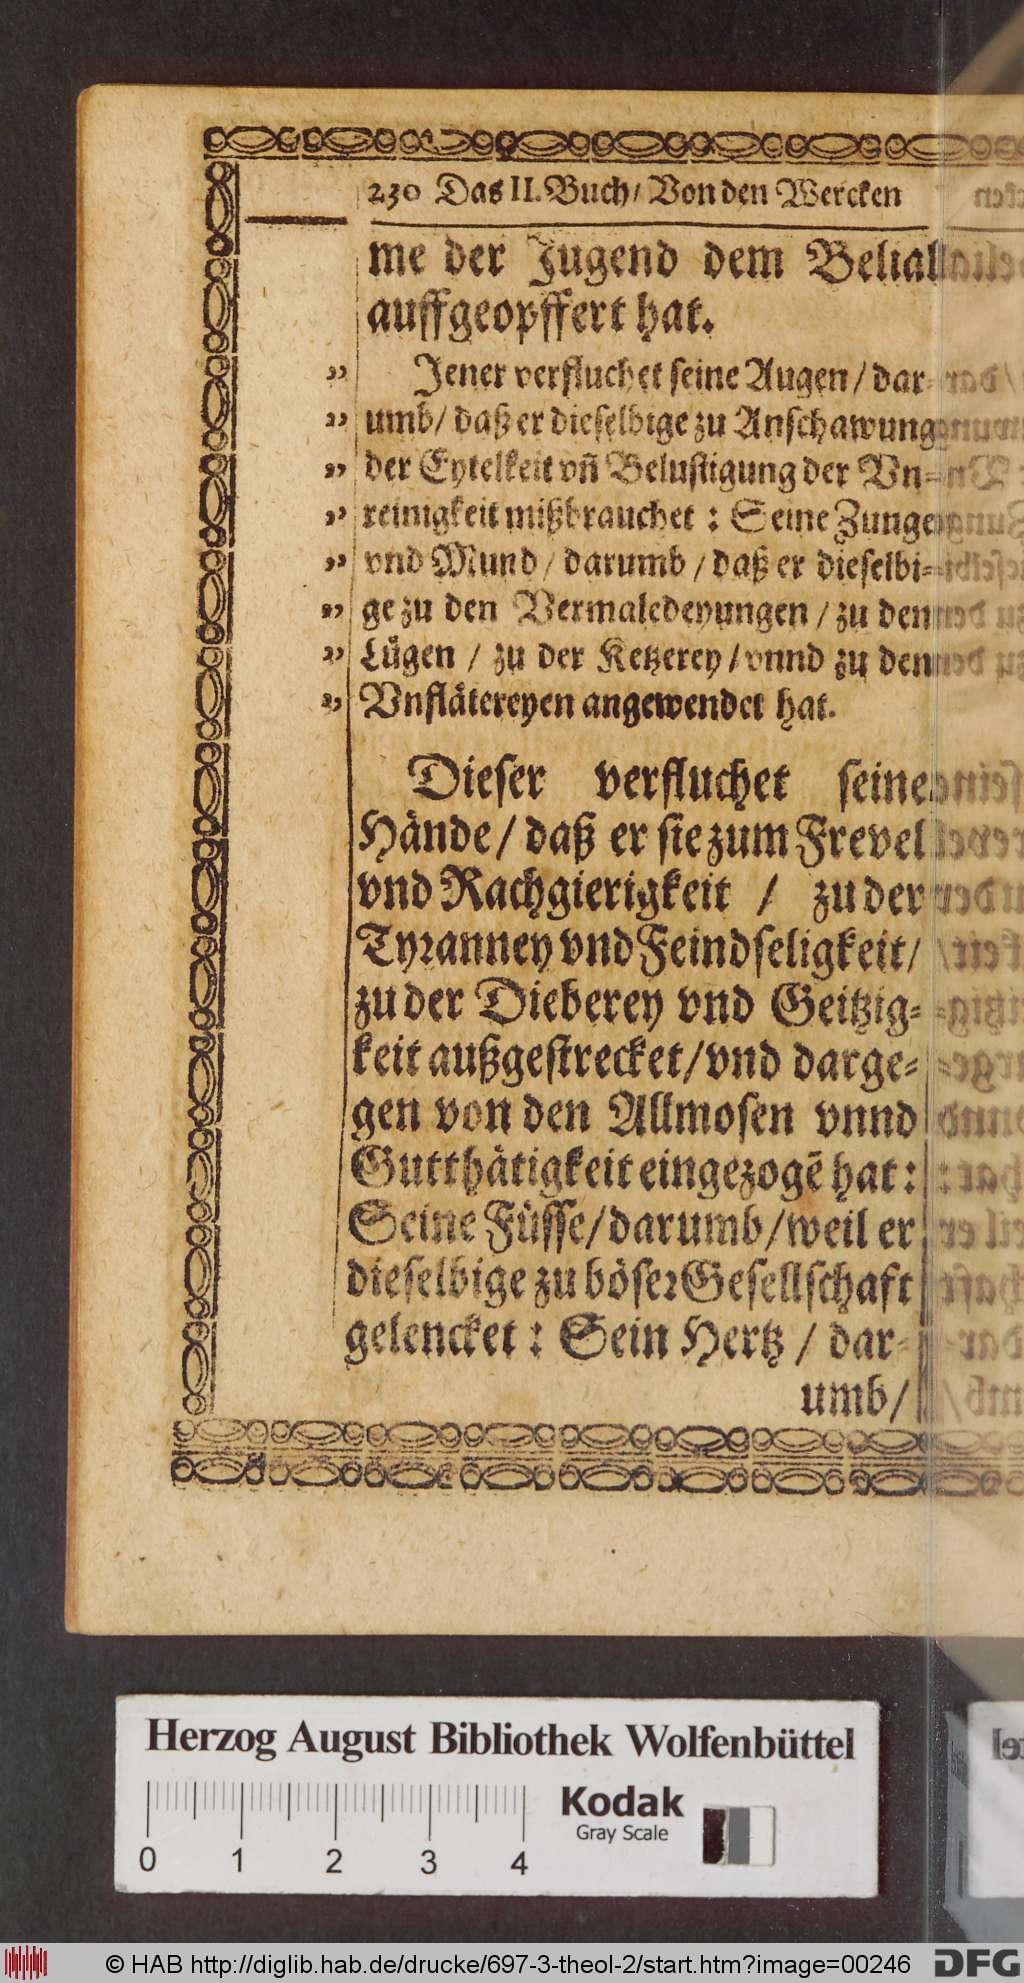 230 Das II. Buch / Von den Wercken
me der Jugend dem Belial
auffgeopffert hat.
„ Jener verfluchet seine Augen / dar-
„ umb / daß er dieselbige zu Anschawung
„ der Eytelkeit vñ Belustigung der Vn-
„ reinigkeit mißbrauchet : Seine Zunge
„ vnd Mund / darumb / daß er dieselbi-
„ ge zu den Vermaledeyungen / zu den
„ Lügen / zu der Ketzerey / vnnd zu den
„ Vnflätereyen angewendet hat.
Dieser verfluchet seine
Hände / daß er sie zum Frevel
vnd Rachgierigkeit / zu der
Tyranney vnd Feindseligkeit /
zu der Dieberey vnd Geitzig-
keit außgestrecket / vnd darge-
gen von den Allmosen vnnd
Gutthätigkeit eingezogē hat :
Seine Füsse / darumb / weil er
dieselbige zu böser Gesellschaft
gelencket : Sein Hertz / dar-
umb /
Herzog August Bibliothek Wolfenbüttel
Kodak
Gray Scale
0 1 2 3 4
© HAB http://diglib.hab.de/drucke/697-3-theol-2/start.htm?image=00246
DFG